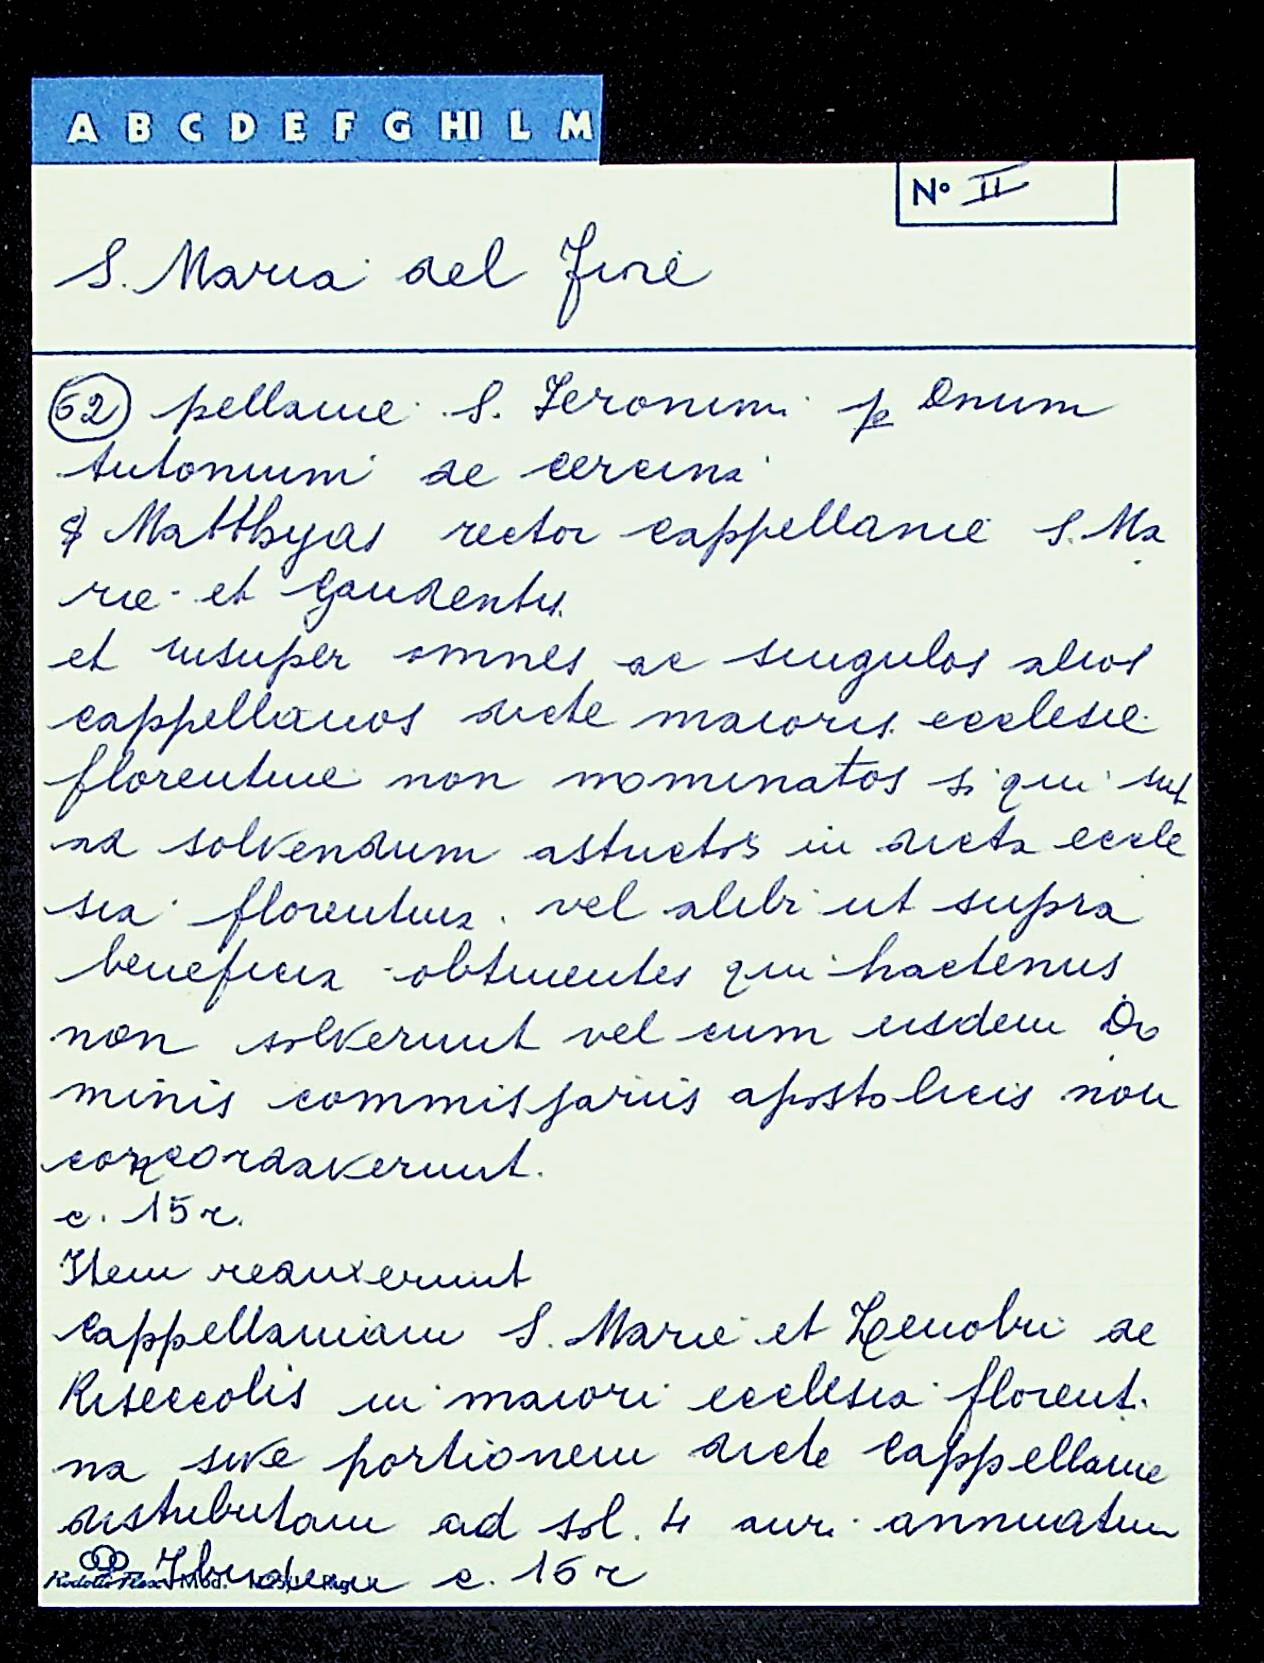 A B C D E F G HI L M
N° II
S. Maria del Fiore
62 pellanie S. Jeronimi p Dnum
Antonium de cercina
S Matthyas rector cappellanie S. Ma
rie et Gaudentii
et insuper omnes ac singulos alios
cappellanos dicte maioris ecclesie
florentine non nominatos si qui sut
ad solvendum astrictos in dicta eccle
sia florentina vel alibi ut supra
beneficia obtinentes qui hactenus
non solverunt vel cum eisdem Do
minis commissariis apostolicis non
concordaverunt.
c. 15 r.
Item reduxerunt
Cappellaniam S. Marie et Zenobii de
Riseccolis in maiori ecclesia florent.
na sive portionem dicte Cappellanie
distributam ad sol. 4 auri annuatim
Ibidem c. 15 r